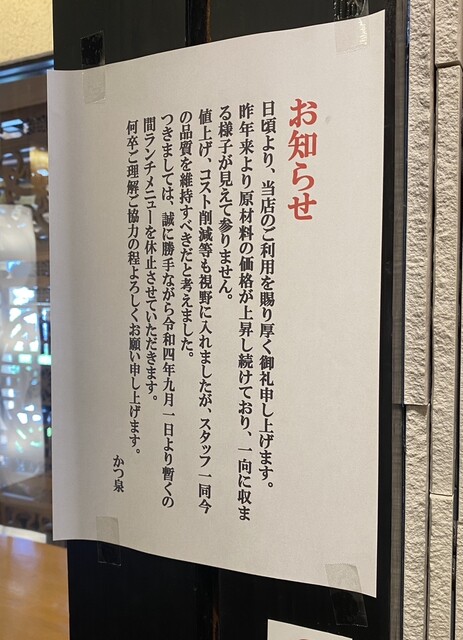 お知らせ
日頃より、当店のご利用を賜り厚く御礼申し上げます。
昨年来より原材料の価格が上昇し続けており、一向に収ま
る様子が見えて参りません。
値上げ、コスト削減等も視野に入れましたが、スタッフ一同今
の品質を維持すべきだと考えました。
つきましては、誠に勝手ながら令和四年九月一日より暫くの
間ランチメニューを休止させていただきます。
何卒ご理解ご協力の程よろしくお願い申し上げます。
かつ泉